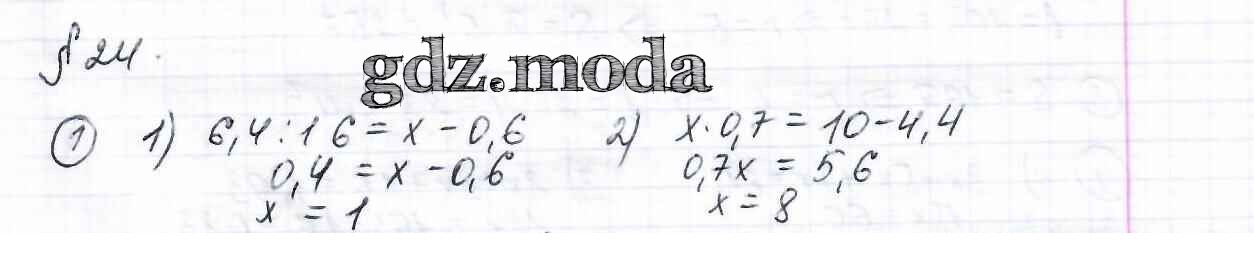 § 24.
gdz.moda
① 1) 6,4 : 16 = x - 0,6 2) x · 0,7 = 10 - 4,4
0,4 = x - 0,6 0,7x = 5,6
x = 1 x = 8